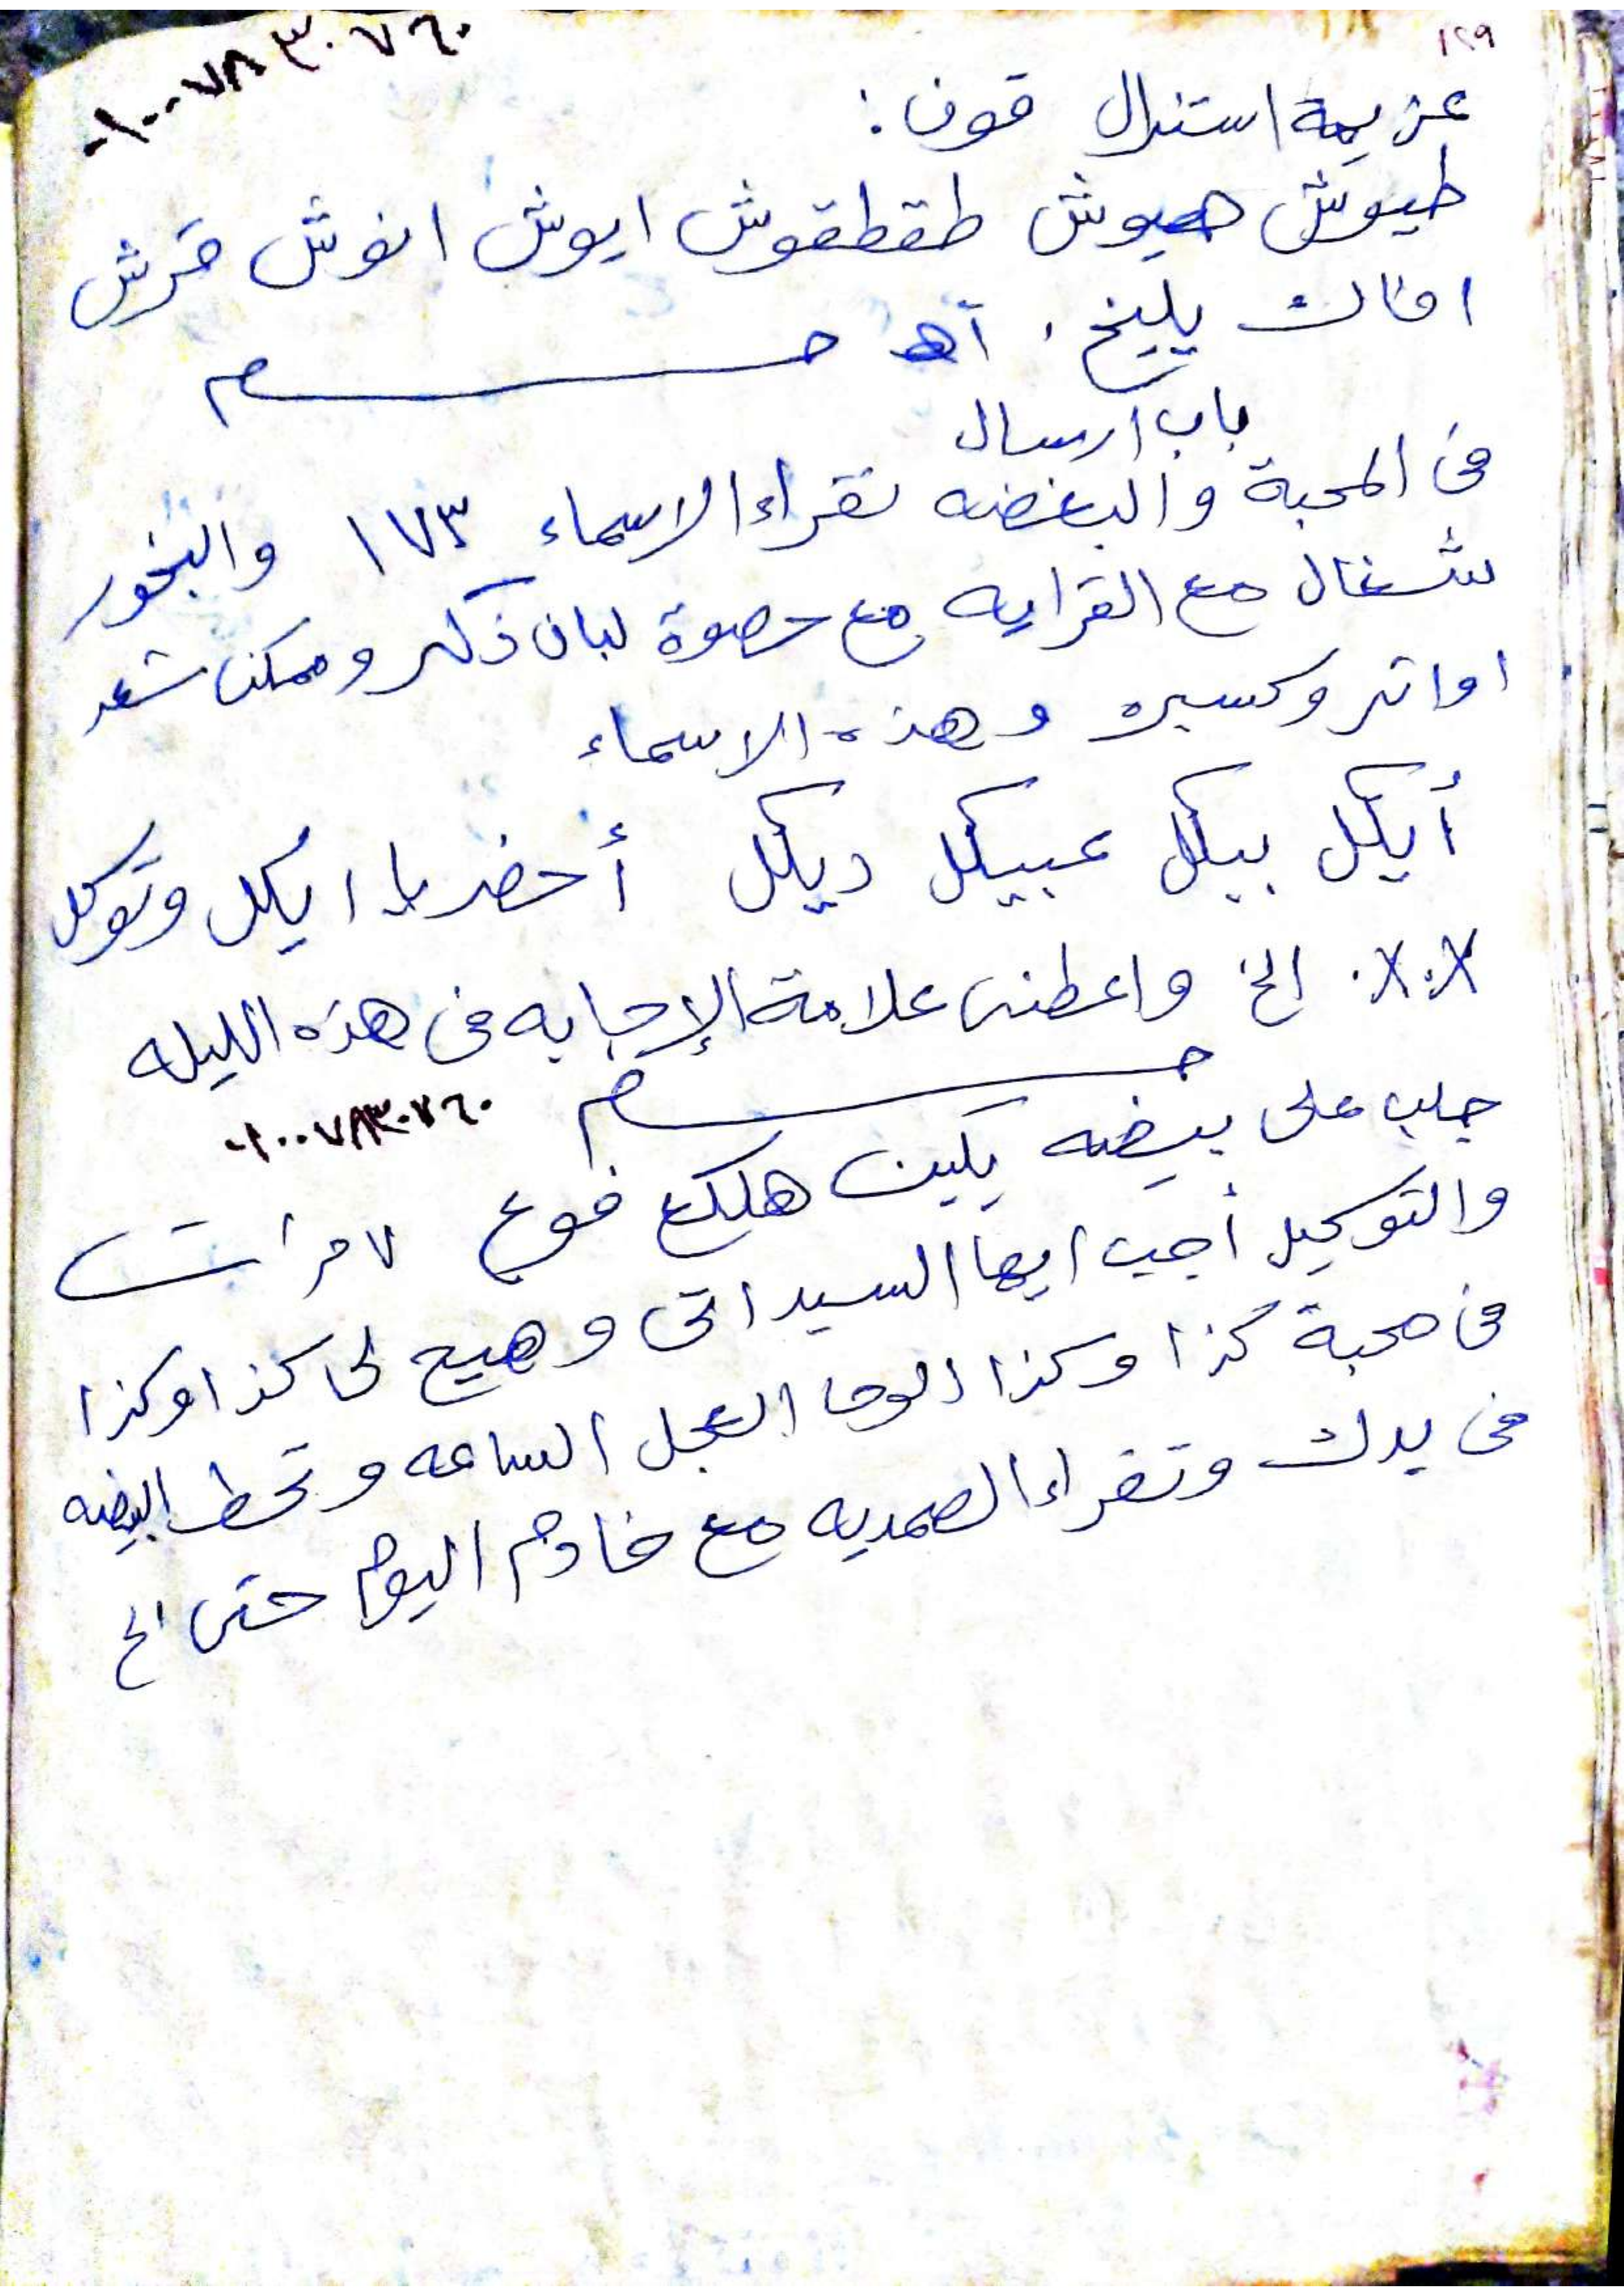 ١٢٩
٠١٠٠٧٨٣٠٧٦٠
عزيمة استنزال قون :
طيوش هيوش طقطقوش ايوش انوش قرش
اناك يليخ . آهـ
باب ارسال
فى المحبة والبغضه تقراء الاسماء ١٧٣ والبخور
شغال مع القرايه مع حصوة لبان ذكر وممكن شعر
او اتر وكسبره وهذه الاسماء
أيكل بيكل عبيكل ديكل أحضر يا ايكل وتوكل
×.×. الخ واعطنى علامة الإجابه فى هذه الليله
٠١٠٠٧٨٣٠٧٦٠
جلب على بيضه يكين هلكع فوع ٧ مرات
والتوكيل أجب ايها السيد اتى وهيج لى كذا وكذا
فى محبة كذا وكذا الوحا العجل الساعه وتحط البيضه
فى يدك وتقراء الصمديه مع خادم اليوم حتى الخ